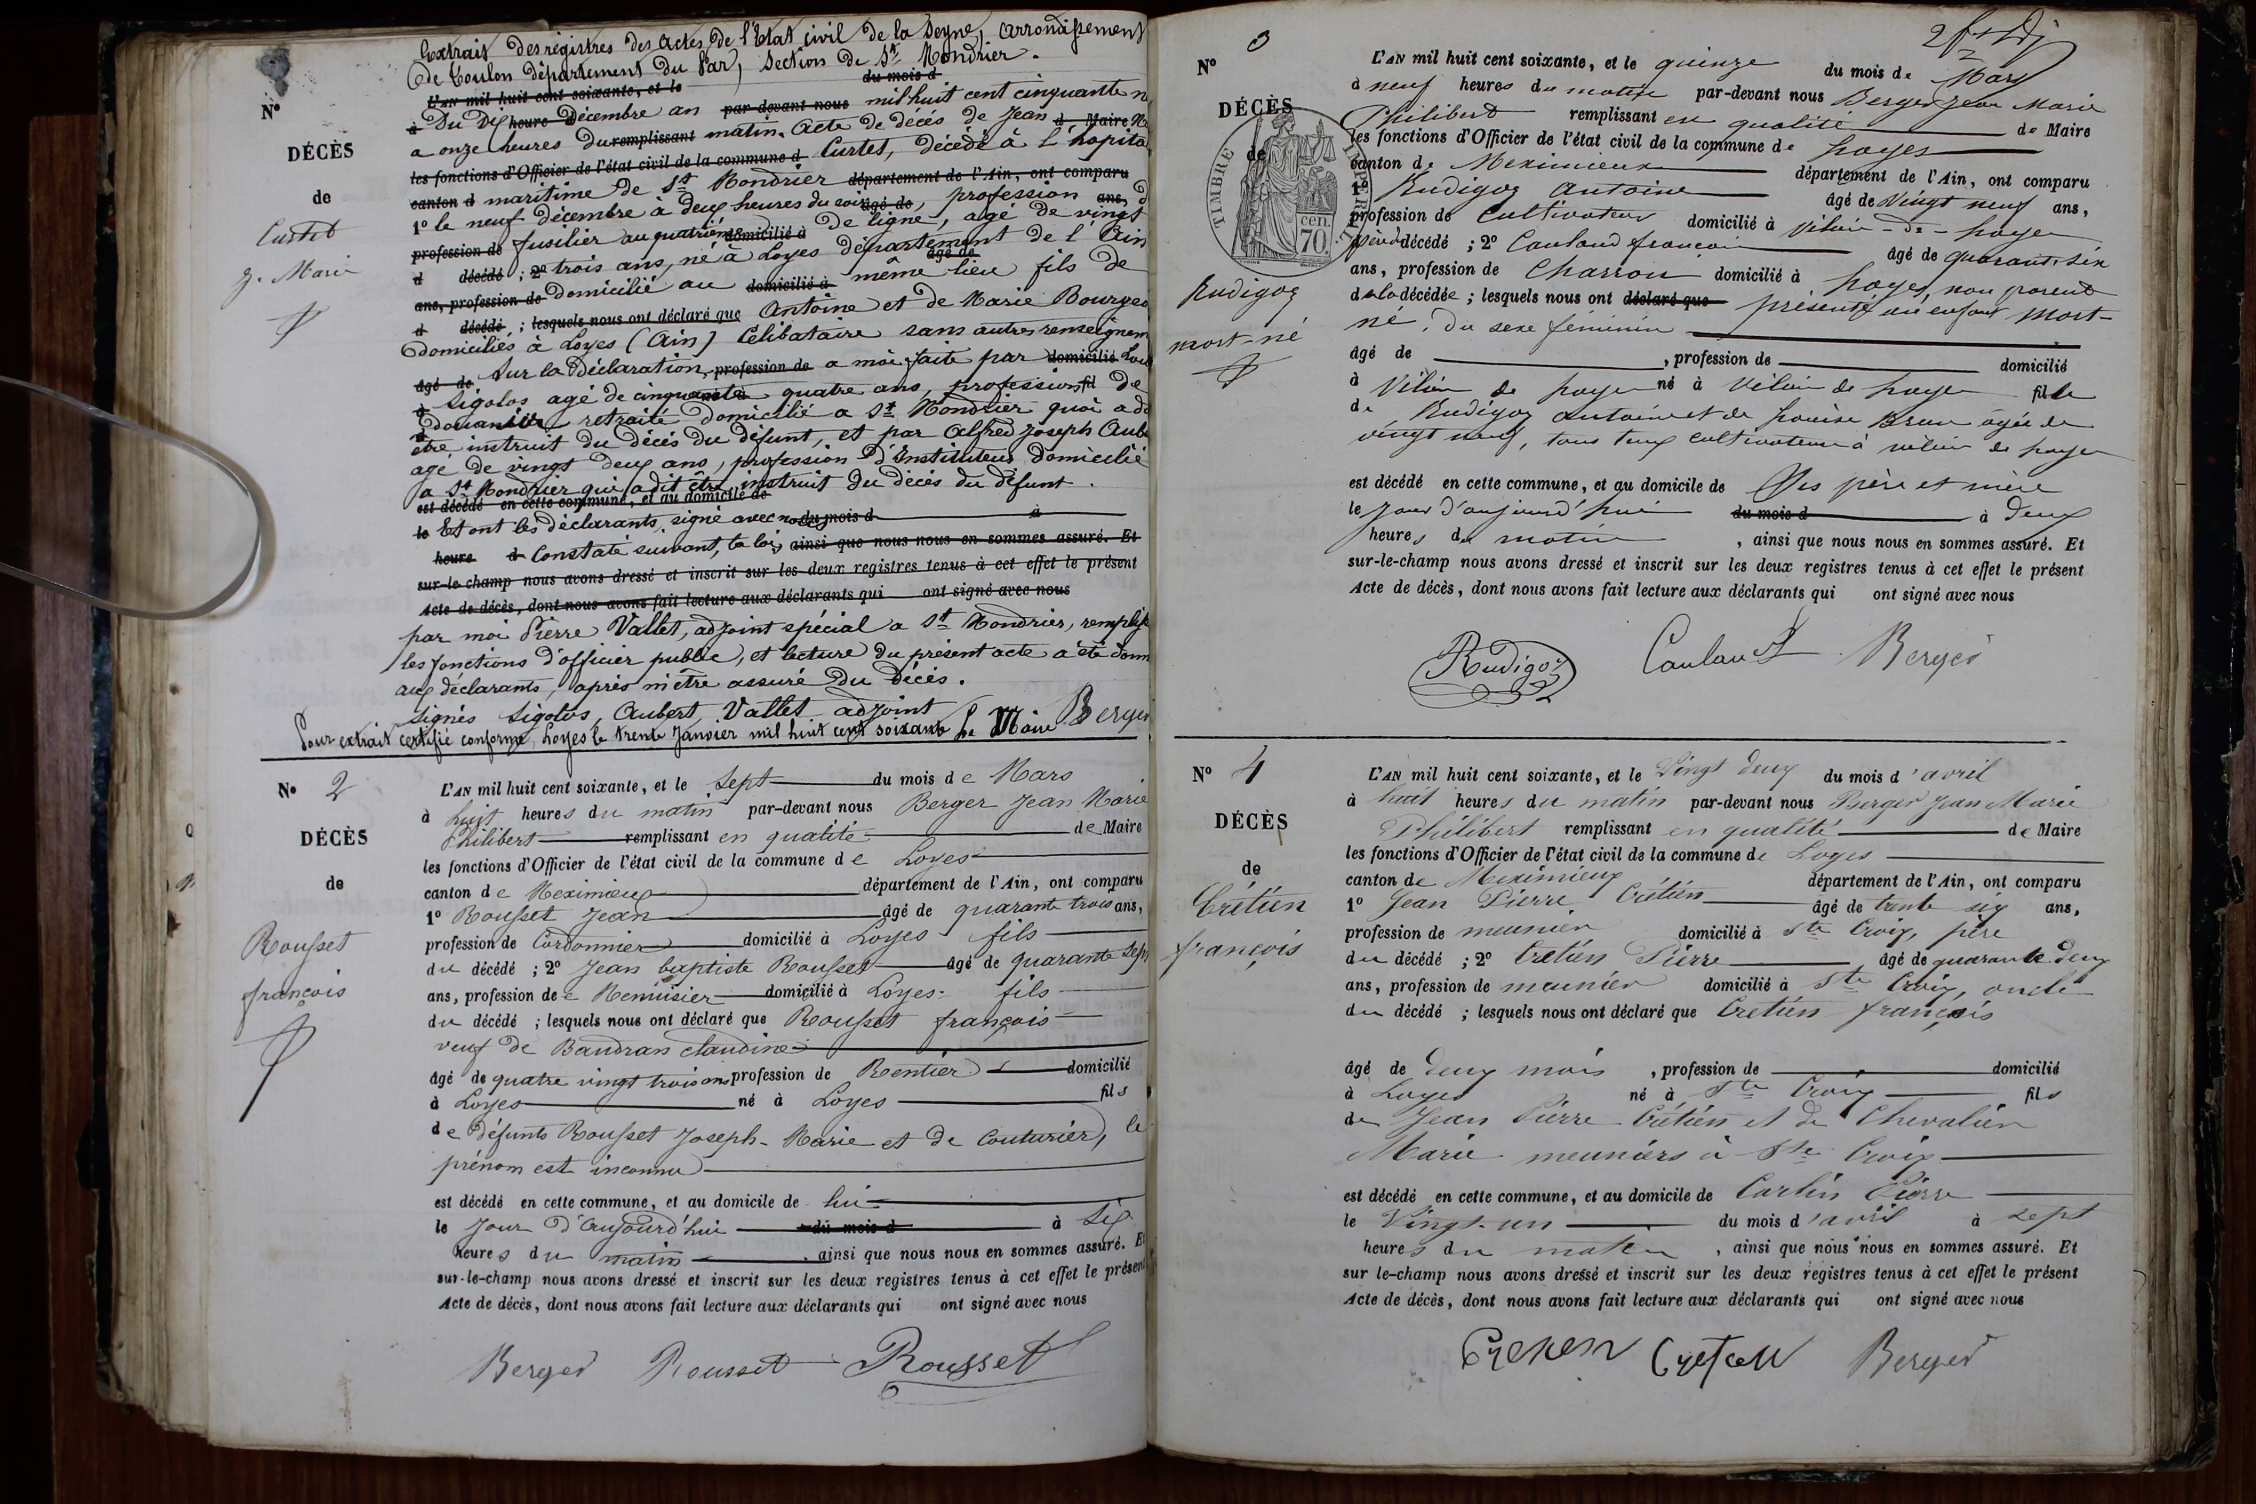 Extrait des registres des actes de l'Etat civil de la Seyne, arrondissement
de Toulon département du Var, section de St Mondrier.
L'AN mil huit cent soixante, et le du mois d
à Du Dix heure Décembre an par-devant nous mil huit cent cinquante
a onze heures du remplissant matin. Acte de décès de Jean d Maire
les fonctions d'Officier de l'état civil de la commune d Curtet, décédé à l'hopital
canton d maritime de St Mondrier département de l'Ain, ont comparu
1º le neuf décembre à deux heures du soir âgé de, profession ans,
profession de fusilier au quatrième domicilié à de ligne, agé de vingt
d décédé ; 2º trois ans, né à Loyes département de l'Ain âgé de
ans, profession de domicilié au domicilié à même lieu fils de
d décédé ; lesquels nous ont déclaré que Antoine et de Marie Bourgeo
domiciliés à Loyes (Ain) Célibataire sans autres renseignem
âgé de Sur la Déclaration, profession de a moi faite par domicilié
à Sigolos agé de cinquante né à quatre ans, profession fil de
d douanier retraité domicilié a St Mondrier quoi a d
être instruit du décès du défunt, et par Alfred Joseph Aube
agé de vingt deux ans, profession d'Instituteur domicilié
a St Mondrier qui a dit etre instruit du décès du défunt.
est décédé en cette commune, et au domicile de
le Et ont les déclarants, signé avec nous du mois d à
heure d Constaté suivant, la loi, ainsi que nous nous en sommes assuré. Et
sur-le-champ nous avons dressé et inscrit sur les deux registres tenus à cet effet le présent
Acte de décès, dont nous avons fait lecture aux déclarants qui ont signé avec nous
par moi Pierre Vallet, adjoint spécial a St Mondrier, remplis
les fonctions d'officier public, et lecture du présent acte a été donn
aux déclarants, après m'être assuré du décès.
Signés Sigolos, Aubert, Vallet adjoint
Pour extrait certifié conforme, Loyes le trente Janvier mil huit cent soixante Le Maire Berger
Nº
DÉCÈS
de
Curtet
J. Marie
Nº 2
DÉCÈS
de
Rousset
françois
L'AN mil huit cent soixante, et le Sept du mois de Mars
à huit heures du matin par-devant nous Berger Jean Marie
Philibert remplissant en qualité de Maire
les fonctions d'Officier de l'état civil de la commune de Loyes
canton de Meximieux département de l'Ain, ont comparu
1º Rousset Jean âgé de quarante trois ans,
profession de Cordonnier domicilié à Loyes fils
du décédé ; 2º Jean baptiste Rousset âgé de quarante Sept
ans, profession de Menuisier domicilié à Loyes fils
du décédé ; lesquels nous ont déclaré que Rousset françois
veuf de Baudran claudine
âgé de quatre vingt trois ans profession de Rentier domicilié
à Loyes né à Loyes fils
de défunts Rousset Joseph-Marie et de Couturier, le
prénom est inconnu
est décédé en cette commune, et au domicile de lui
le Jour d'aujourd'hui du mois d à Six
heures du matin, ainsi que nous nous en sommes assuré. Et
sur-le-champ nous avons dressé et inscrit sur les deux registres tenus à cet effet le présent
Acte de décès, dont nous avons fait lecture aux déclarants qui ont signé avec nous
Berger Rousset Rousset
Nº 3
DÉCÈS
de
TIMBRE IMPÉRIAL
70 cen.
Rudigoz
mort-né
L'AN mil huit cent soixante, et le quinze du mois de Mars
à neuf heures du matin par-devant nous Berger Jean Marie
Philibert remplissant en qualité de Maire
les fonctions d'Officier de l'état civil de la commune de Loyes
canton de Meximieux département de l'Ain, ont comparu
1º Rudigoz antoine âgé de Vingt neuf ans,
profession de Cultivateur domicilié à Vilieu-de-Loyes
père d décédé ; 2º Caulaud françois âgé de quarante six
ans, profession de Charron domicilié à Loyes, non parent
de la décédée ; lesquels nous ont déclaré que présenté un enfant mort-
né, du sexe féminin
âgé de , profession de domicilié
à Vilieu de Loyes né à Vilieu de Loyes fille
de Rudigoz antoine et de Louise Brun agée de
vingt neuf, tous deux cultivateurs à vilieu de Loyes
est décédé en cette commune, et au domicile de Ses père et mère
le Jour d'aujourd'hui du mois d à deux
heures du matin, ainsi que nous nous en sommes assuré. Et
sur-le-champ nous avons dressé et inscrit sur les deux registres tenus à cet effet le présent
Acte de décès, dont nous avons fait lecture aux déclarants qui ont signé avec nous
Rudigoz Caulaud Berger
Nº 4
DÉCÈS
de
Crétien
françois
L'AN mil huit cent soixante, et le Vingt deux du mois d'avril
à huit heures du matin par-devant nous Berger Jean Marie
Philibert remplissant en qualité de Maire
les fonctions d'Officier de l'état civil de la commune de Loyes
canton de Meximieux département de l'Ain, ont comparu
1º Jean Pierre Crétien âgé de trente six ans,
profession de meunier domicilié à Ste Croix, père
du décédé ; 2º Crétien Pierre âgé de quarante deux
ans, profession de meunier domicilié à Ste Croix, oncle
du décédé ; lesquels nous ont déclaré que Cretien françois
âgé de deux mois, profession de domicilié
à Loyes né à Ste Croix fils
de Jean Pierre Crétien et de Chevalier
Marie meuniers à Ste Croix
est décédé en cette commune, et au domicile de Carlin Pierre
le Vingt-un du mois d'avril à Sept
heures du matin, ainsi que nous nous en sommes assuré. Et
sur le-champ nous avons dressé et inscrit sur les deux registres tenus à cet effet le présent
Acte de décès, dont nous avons fait lecture aux déclarants qui ont signé avec nous
Cretien Cretien Berger